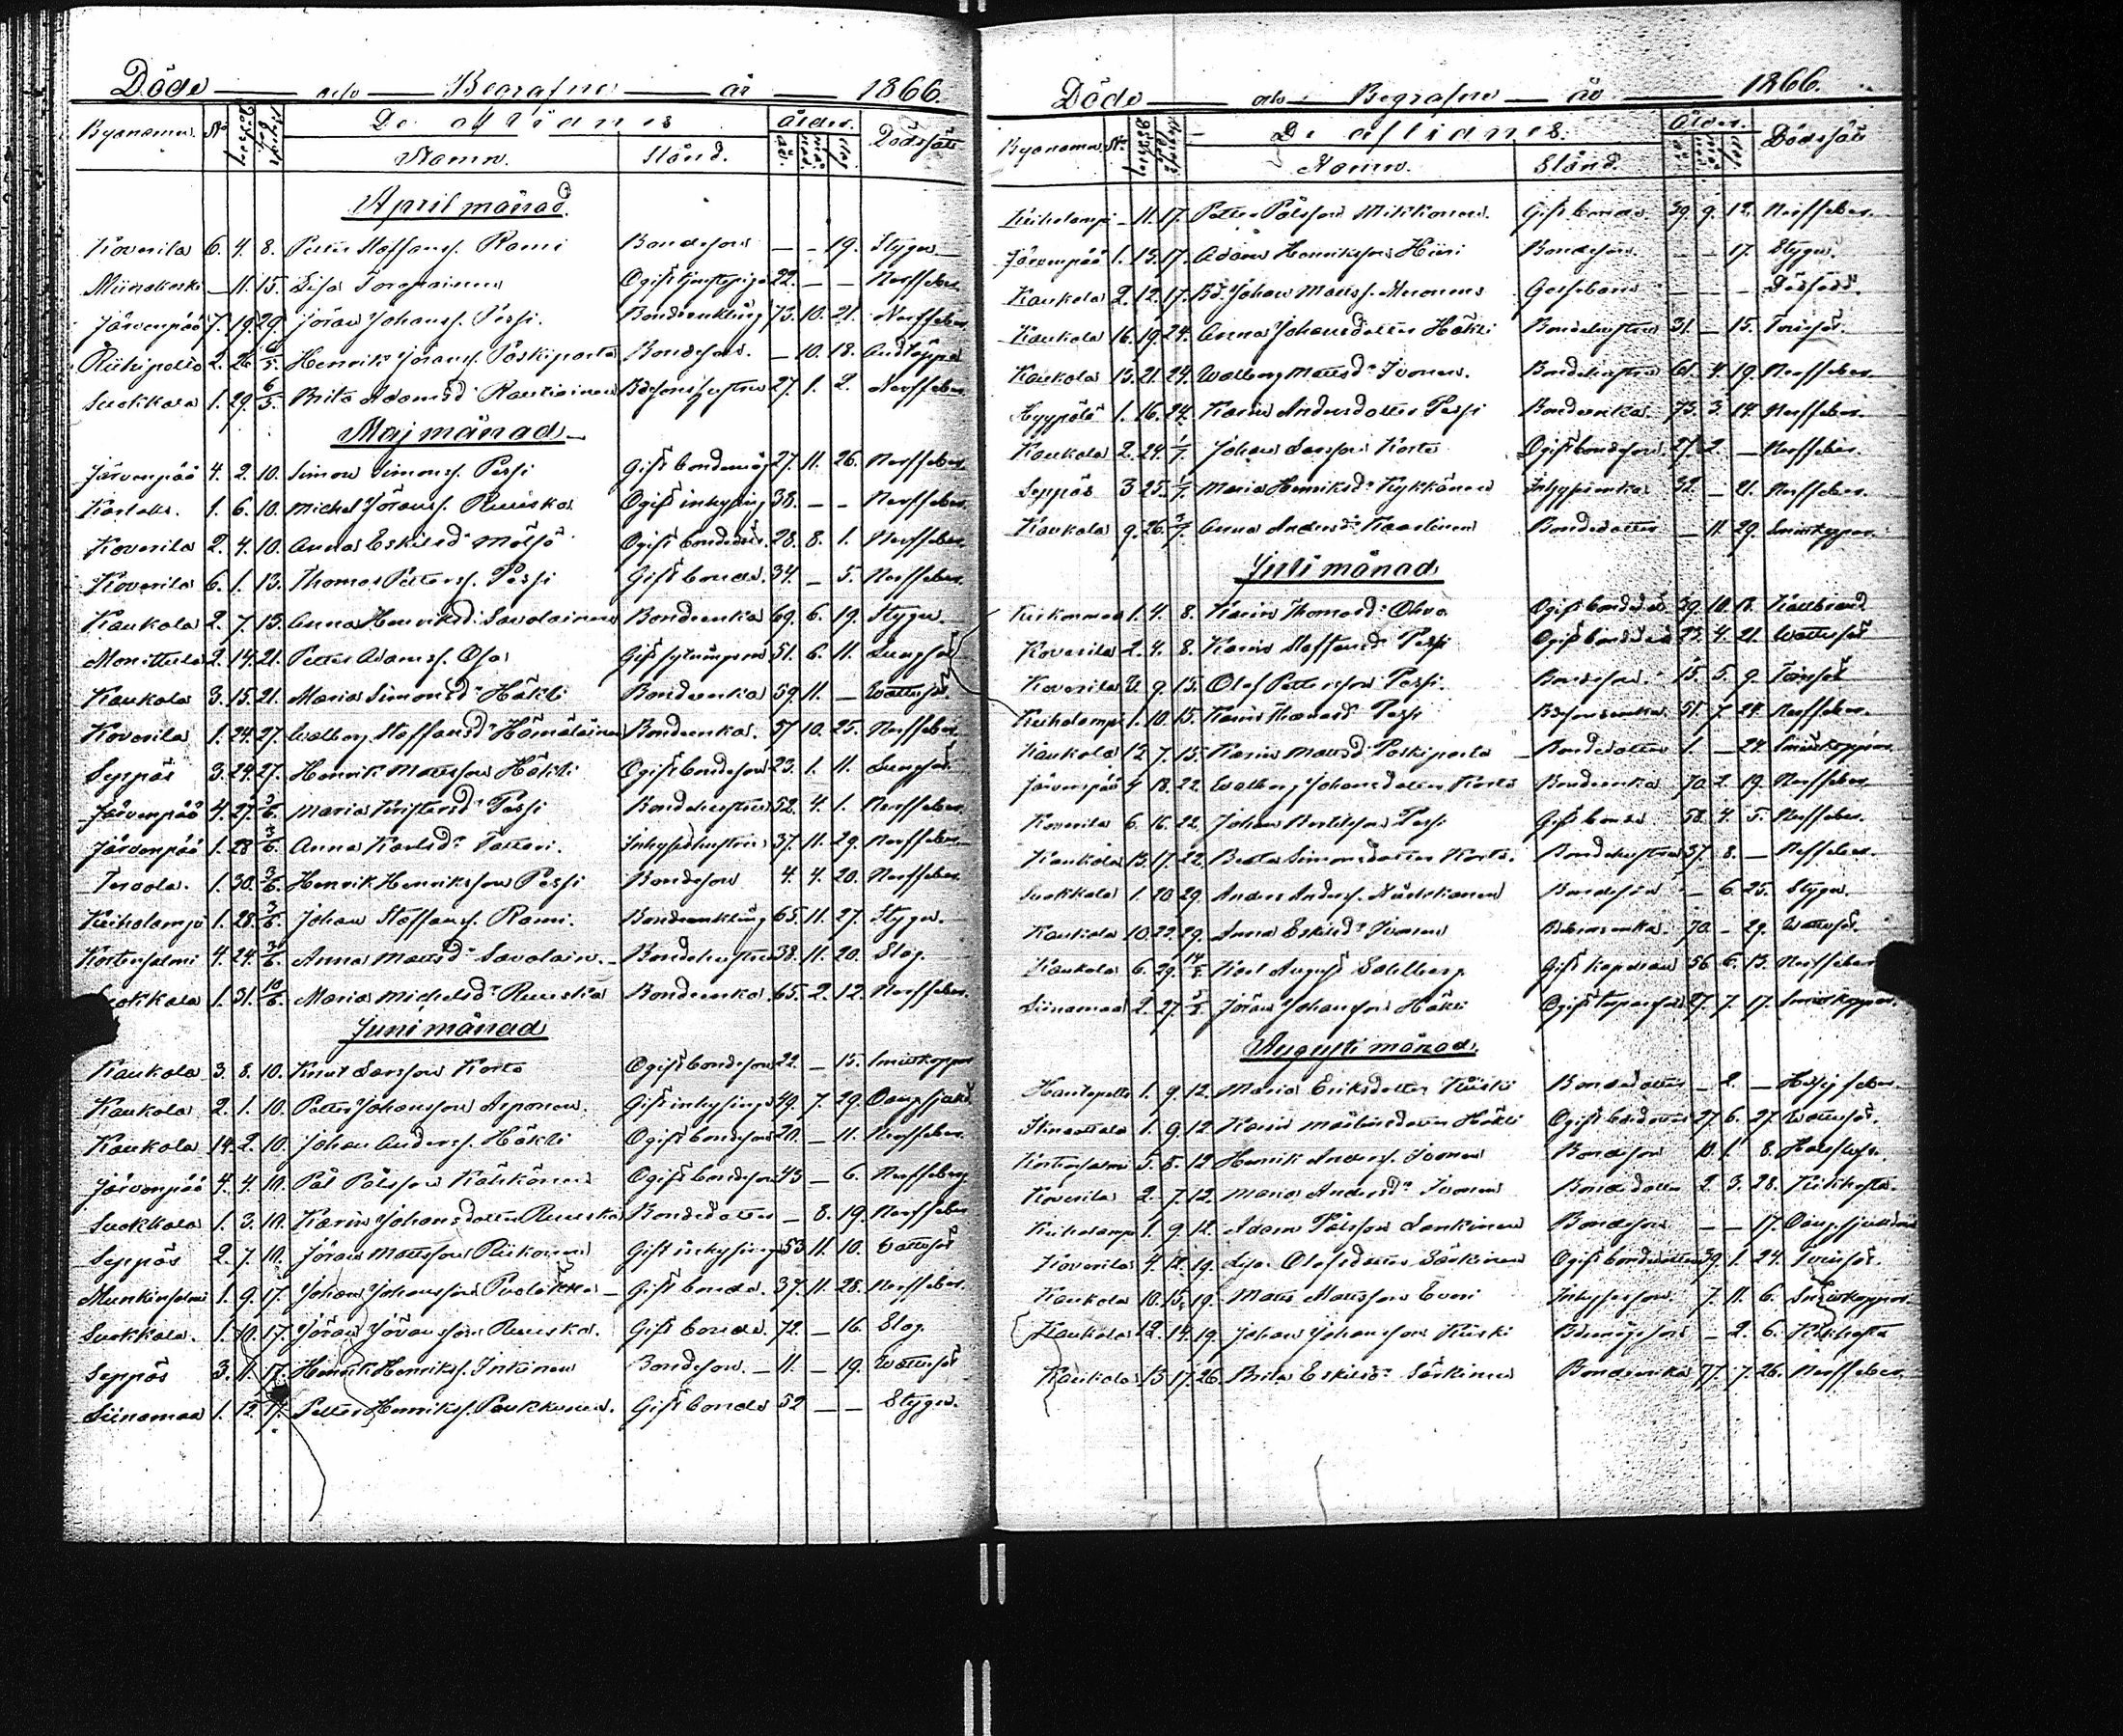 Döde och Begrafne år 1866.
Byanamn. No De aflidnes ålder. Dödssätt
Namn. Stånd. år.
April månad.
Koverila 6. 4. 8. Petter Staffansf. Rami Bondeson — — 19. Stygn
11. 15. Lisa 22. — — Nerffeber
Järvenpää 7. 19. 29. Jöran Johansf. Pessi. Bondeenkling 73. 10. 21. Nerffeber
Riihipelto 2. 26. 6/5. Henrik Jöransf. Paskiparta Bondeson. — 10. 18. Andtäppa
Suokkala 1. 29. 6/5. Brita Adamsd:r Rautiainen 27. 1. 2. Nerffeber
Maj månad
Järvenpää 4. 2. 10. Simon Simonsf. Pessi Gift bondemåg 27. 11. 26. Nerffeber
1. 6. 10. Michel Jöransf. Ruuska Ogift inhysing 38. — — Nerffeber.
Koverila 2. 4. 10. Anna Eskilsd:r Mölsö Ogift bondedot. 28. 8. 1. Nerffeber.
Koverila 6. 1. 13. Thomas Pettersf. Pessi Gift bonde. 34. — 5. Nerffeber.
Kaukola 2. 7. 13. Anna Henriksd:r Savolainen Bondeenka 69. 6. 19. Stygn.
Monittula 2. 14. 21. Petter Adamsf. Gift 51. 6. 11. Lungsot
Kaukola 3. 15. 21. Maria Simonsd:r Häkli Bondeenka 59. 11. — Wattusot
Koverila 1. 24. 27. Walborg Staffansd:r Hämäläinen Bondeenka. 57 10. 25. Nerffeber.
Seppäs 3. 24. 27. Henrik Mattsson Häkli Ogift bondeson 23. 1. 11. Lungsot.
Järvenpää 4. 27. 3/6. Maria Kristersd:r Pessi Bondehustru 52. 4. 1. Nerffeber.
Järvenpää 1. 28 3/6. Anna Karlsd:r Tatteri. Inhyseshustru 37. 11. 29. Nerffeber
1. 30. 3/6. Henrik Henriksson Pessi Bondeson 4. 4. 20. Nerffeber.
Kuiholampi 1. 28. 3/6. Johan Staffansf. Rami. Bondeenkling 65. 11. 27. Stygn.
Kortensalmi 4. 24. 3/6. Anna Mattsd:r Savolain. Bondehustru 38. 11. 20. Slag.
Suokkala 1. 31. 10/6. Maria Michelsd:r Ruuska Bondeenka 65. 2. 12. Nerffeber.
Juni månad
Kaukola 3. 8. 10. Knut Larsson Korte Ogift bondeson 22. — 15. Smittkoppor
Kaukola 2. 1. 10. Petter Johansson Asponen. Gift inhysing 49. 7. 29.
Kaukola 14. 2. 10. Johan Andersf. Häkli Ogift bondeson 20. — 11. Nerffeber
Järvenpää 4. 4. 10. Pål Pålsson Kähkönen Ogift bondeson 45 — 6. Nerffeber
Suokkala 1. 3. 10. Karin Johansdotter Ruuska Bondedotter — 8. 19. Nerffeber
Seppäs 2. 7. 10. Jöran Mattsson Riikonen Gift inhysing 53 11. 10. Vattusot
Munkinsalmi 1. 9. 17. Johan Johansson Puolakka Gift bonde. 37. 11. 28. Nerffeber.
Suokkala. 1. 10. 17. Jöran Jöransson Ruuska. Gift bonde. 72. — 16. Slag.
Seppäs 3. 11. 17. Henrik Henriksf. Inkinen Bondeson. — 11. — 19. Wattusot
Siinamaa 1. 12. 17. Petter Henriksf. Paukkunen. Gift bonde 52 — — Stygn.
Döde och Begrafne år 1866.
Byanamn No De aflidnes. Ålder. Dödssätt
Namn. Stånd.
Kuiholampi — 11. 17. Petter Pålsson Mikkonen. Gift bonde 39 9. 12. Nerffeber.
Järvenpää 1. 13. 17. Adam Henriksson Hiiri Bondeson. — — 17. Stygn.
Kaukola 2. 12. 17. Bd. Johan Mattsf. Muonens Gossebarn — — — Dödfödd.
Kaukola 16. 19. 24. Anna Johansdotter Häkli Bondehustru 31. — 15. Torrsot.
Kaukola 15. 21. 24. Walborg Mattsd:r Ivonen. Bondehustru 61. 4. 19. Nerffeber.
Hyypölä 1. 16. 24. Karin Andersdotter Pessi Bondeenka 73. 3. 14. Nerffeber.
Kaukola 2. 24. 1/7. Johan Larsson Korte Ogift bondeson 27. 2. — Nerffeber.
Seppäs 3 25. 1/7. Maria Henriksd:r Kykkänen Inhysesenka 32. — 21. Nerffeber.
Kaukola 9. 26. Anna Andersd:r Kaartinen Bondedotter — 11. 29. Smittkoppor.
Juli månad
1. 4. 8. Karin Thomasd:r Ohvo Ogift bondedot. 10. 18. Kallbrand
Koverila 2. 4. 8. Karin Staffansd:r Pessi Ogift 4. 21. Wattusot
Koverila 9. 15. Olof Pettersson Pessi. Bondeson 15. 5. 9. Torrsot
Kuiholampi 1. 10. 15. Karin Pessi 51. 7. 24. Nerffeber.
Kaukola 12 7. 15. Karin Mattsd:r Paskiparta Bondedotter 1. — 24. Smittkoppor
Järvenpää 4 18. 22. Walborg Johansdotter Korte Bondeenka 70 2. 19. Nerffeber.
Koverila 6. 16. 22. Johan Pessi Gift bonde 58. 4. 5. Nerffeber.
Kaukola 15. 17. 22. Beata Simonsdotter Korte. Bondehustru 37. 8. — Nerffeber.
Suokkala 1. 20 29. Anders Andersf. Bondeson — 6. 25. Stygn.
Kaukola 10. 22. 29. Anna Eskilsd:r Ivonen 70 — 29. Wattusot.
Kaukola 6. 29. Karl August Sahlberg Gift kapellan 56 6. 13. Nerffeber
Siinamaa 2. 27. 5/8. Jöran Johansson Häkli Ogift 27. 7. 17. Smittkoppor.
Augusti månad.
1. 9. 12. Maria Eriksdotter Kiiski Bondedotter — 2. — Hetsig feber
1. 9. 12. Karin Häkli Ogift 27. 6. 27. Wattusot.
Kortensalmi 5. 8. 12 Henrik Andersf. Ivonen Bondeson 10. 1. 8. Halsfluss.
Koverila 2. 7. 12. Maria Andersd:r Ivonen Bondedotter 2. 3. 28. Kikhosta.
Kuiholampi 1. 9. 12. Adam Pålsson Lankinen Bondeson — — 17.
Koverila 4. 12. 19. Lisa Olofsdotter Särkinen Ogift bondedotter 39. 1. 24. Tvinsot.
Kaukola 10. 15. 19. Matts Mattsson Everi Inhysesson. 7. 11. 6. Smittkoppor.
Kaukola 12. 14. 19. Johan Johansson Kiiski — 2. 6. Kikhosta
Kaukola 15 17. 26. Brita Eskilsd:r Särkinen Bondeenka 77. 7. 26. Nerffeber.